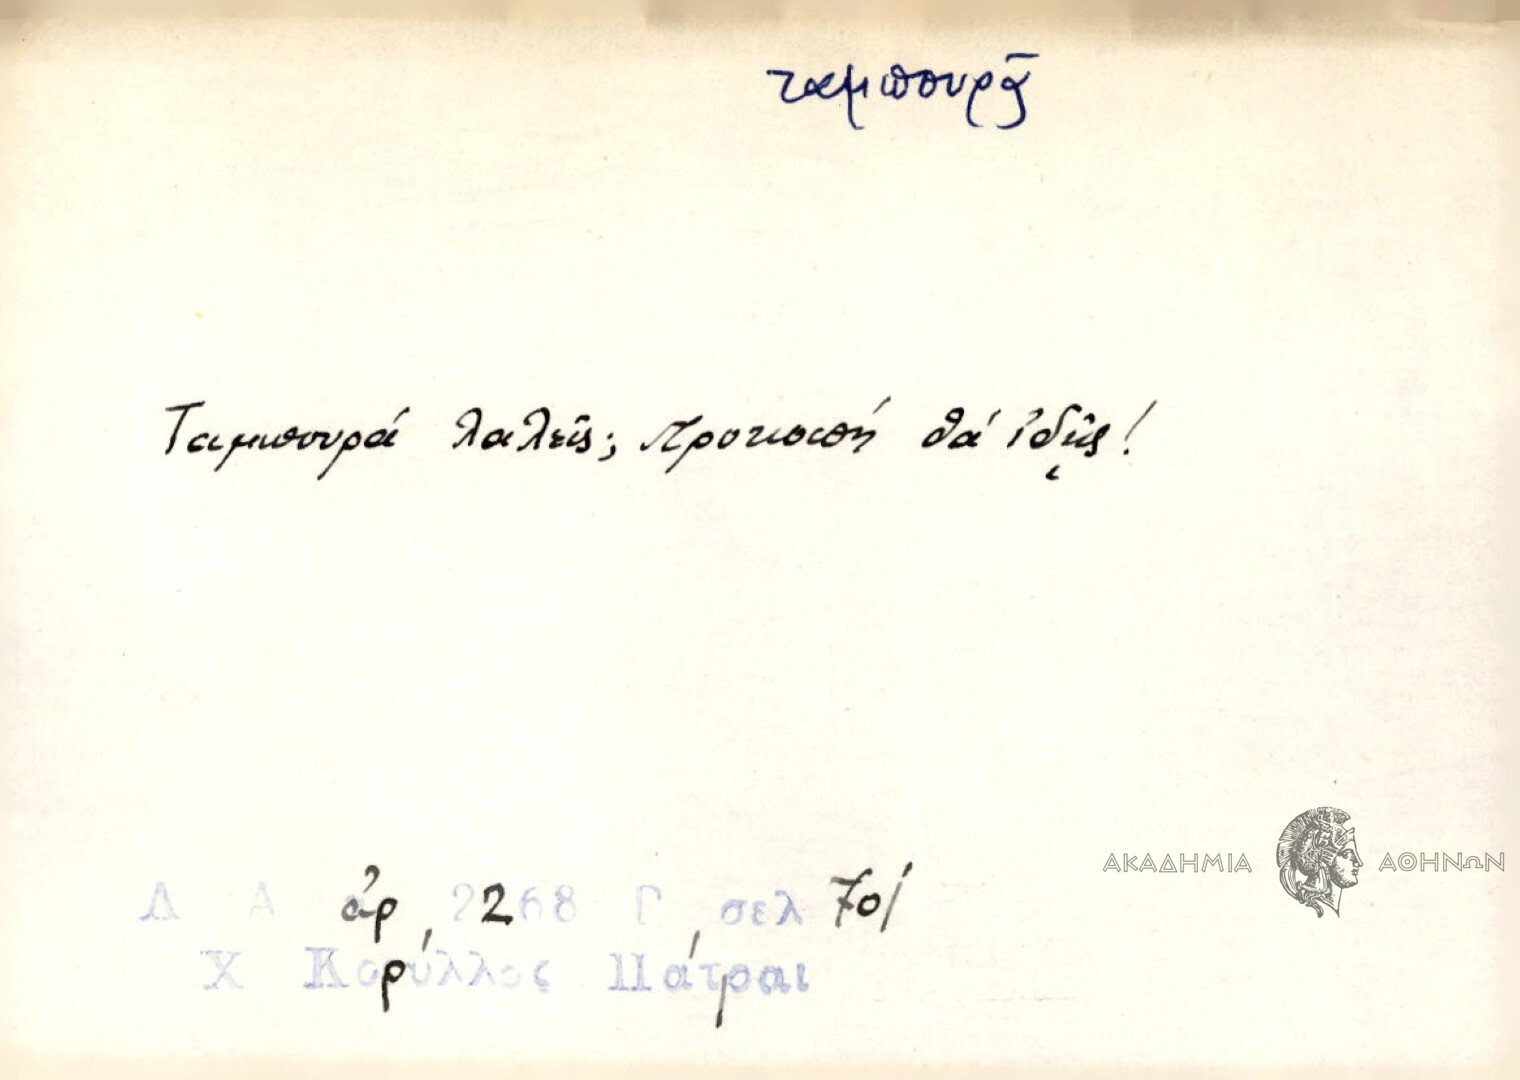 ταμπουρᾶς
Ταμπουρά λαλεῖς; προκοπή θά ἰδῇς!
ΑΚΑΔΗΜΙΑ ΑΘΗΝΩΝ
Λ Α ἀρ, 2268 Γ, σελ 701
Χ Κορύλλος Πάτραι